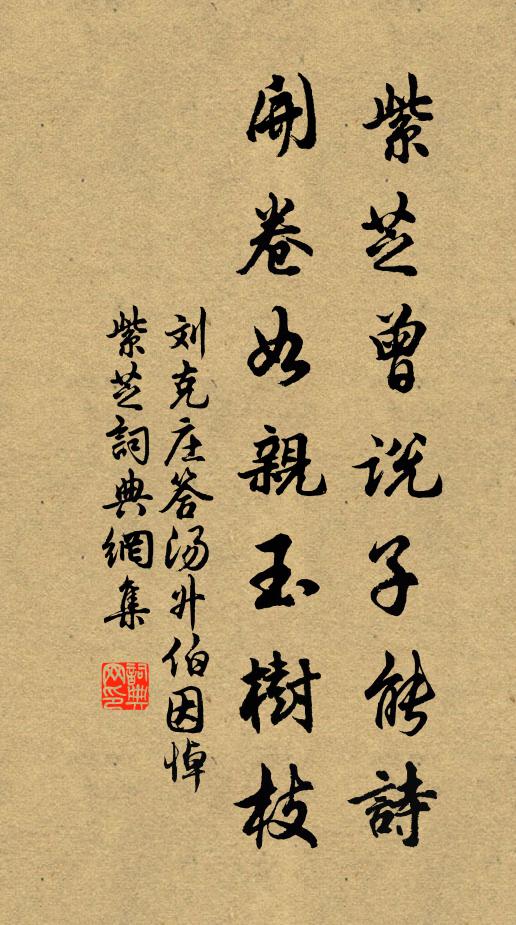 紫芝曾说子能詩
開卷如親玉樹枝
刘克庄答汤升伯因悼
紫芝詞典網集
詞典网印